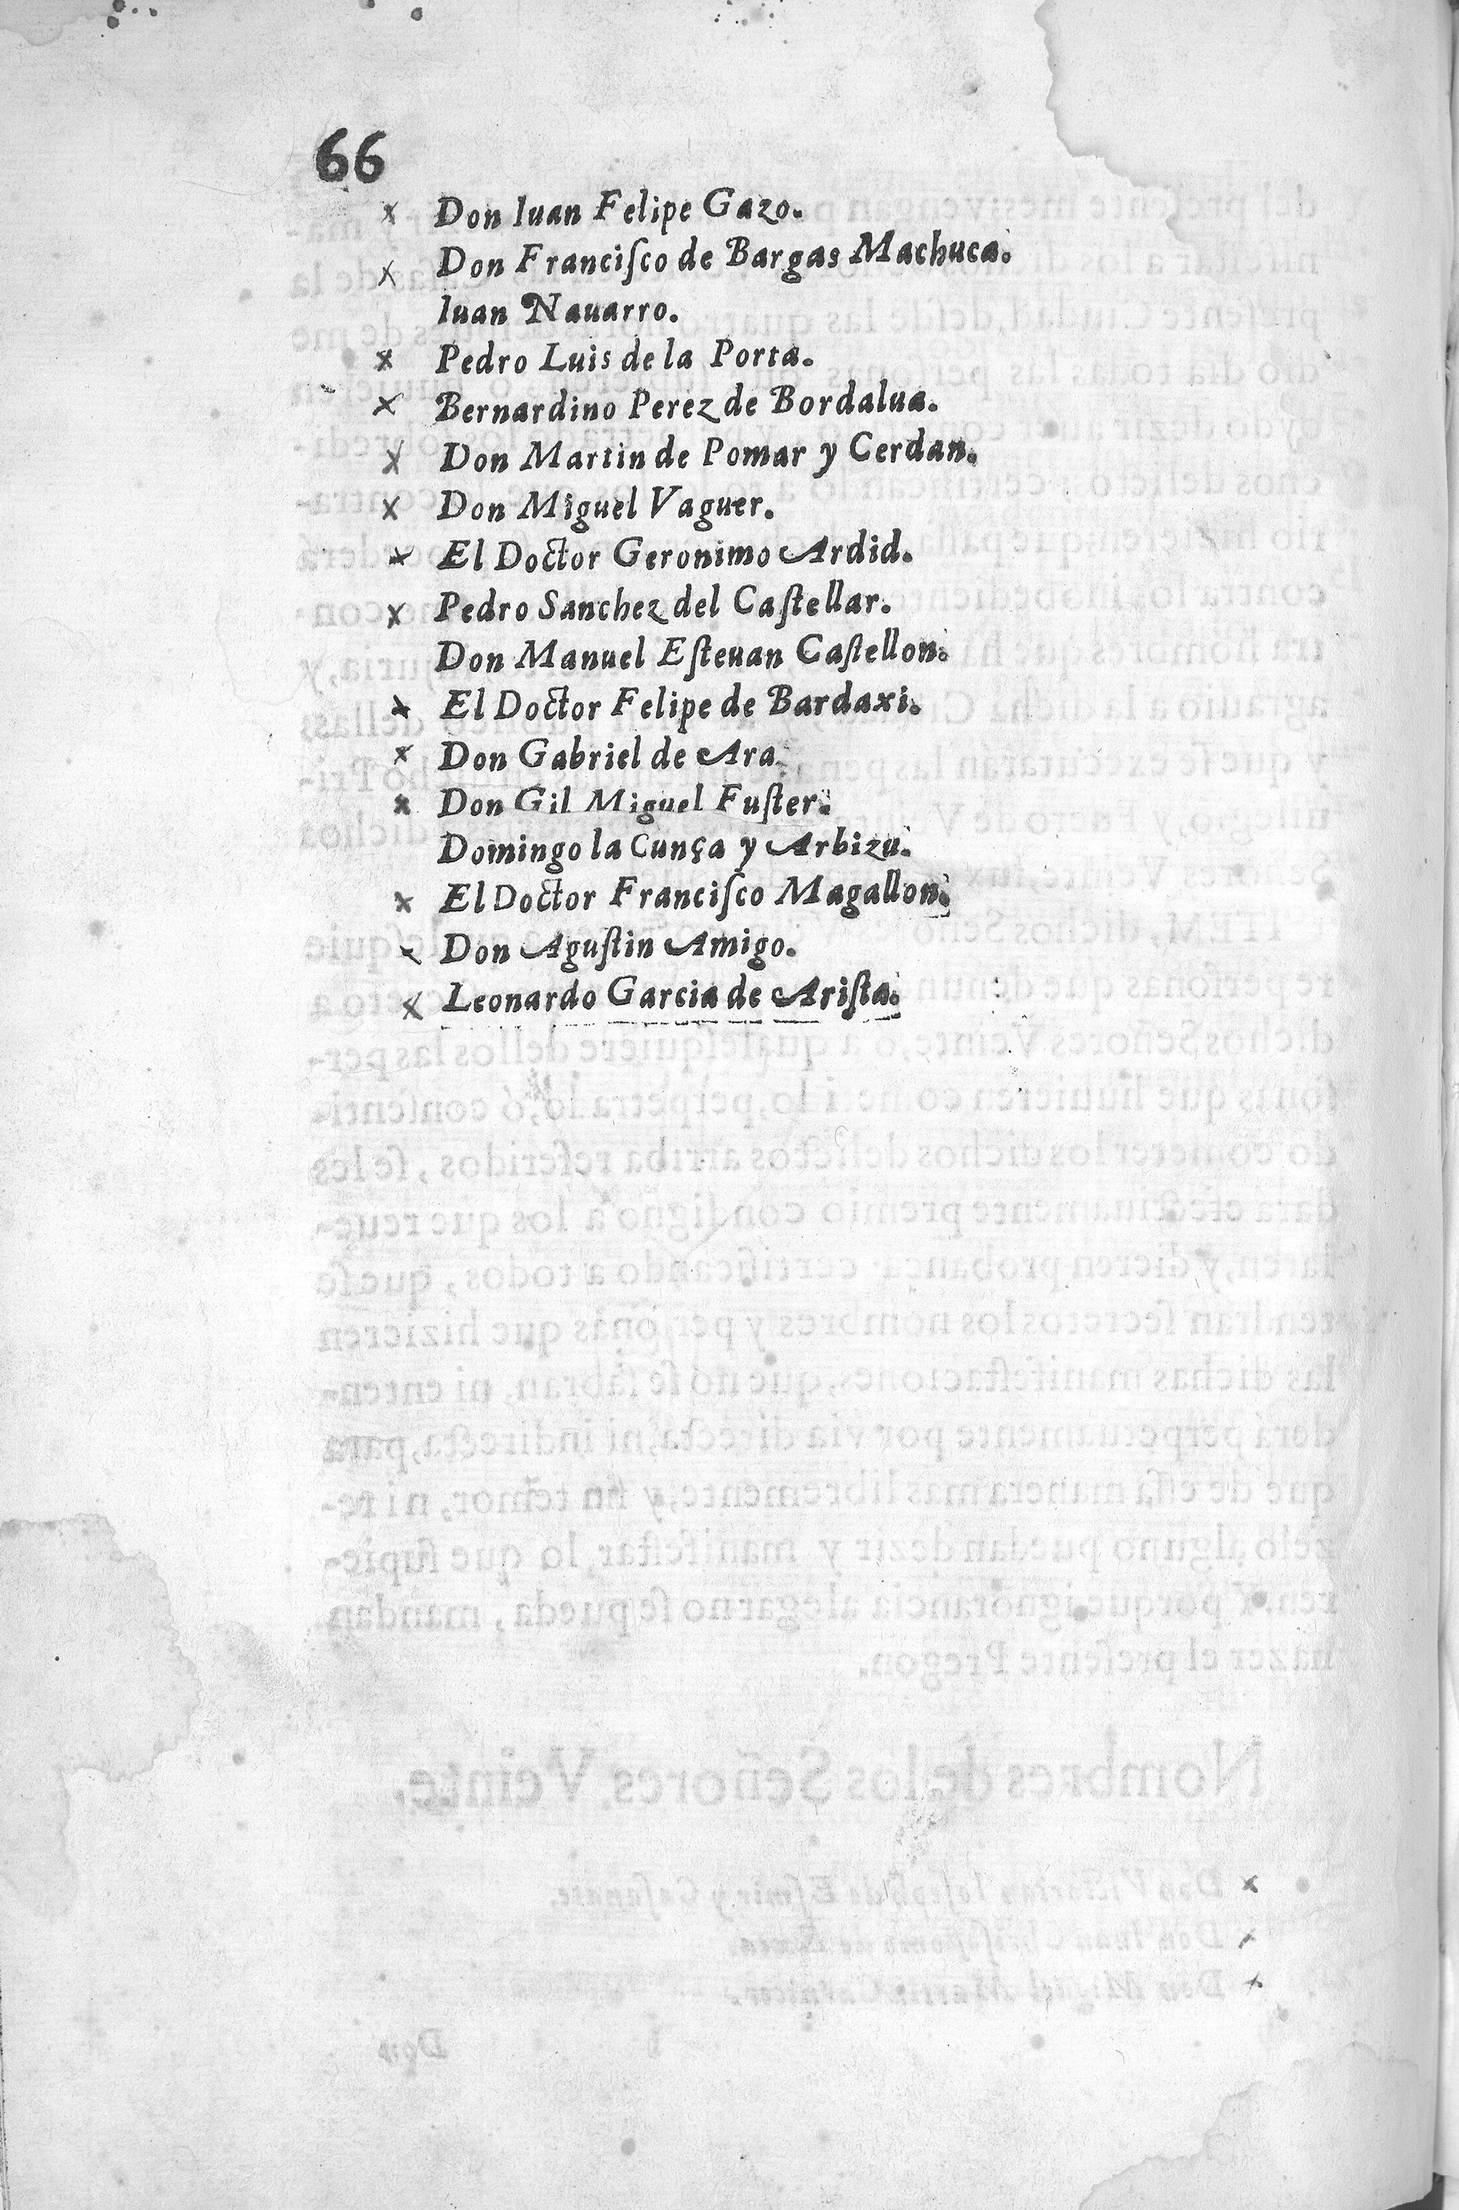 66
Don Iuan Felipe Gazo.
Don Franciſco de Bargas Machuca.
Iuan Nauarro.
Pedro Luis de la Porta.
Bernardino Perez de Bordalua.
Don Martin de Pomar y Cerdan.
Don Miguel Vaguer.
El Doctor Geronimo Ardid.
Pedro Sanchez del Caſtellar.
Don Manuel Eſteuan Caſtellon.
El Doctor Felipe de Bardaxi.
Don Gabriel de Ara.
Don Gil Miguel Fuſter.
Domingo la Cunça y Arbizu.
El Doctor Franciſco Magallon.
Don Aguſtin Amigo.
Leonardo Garcia de Ariſta.